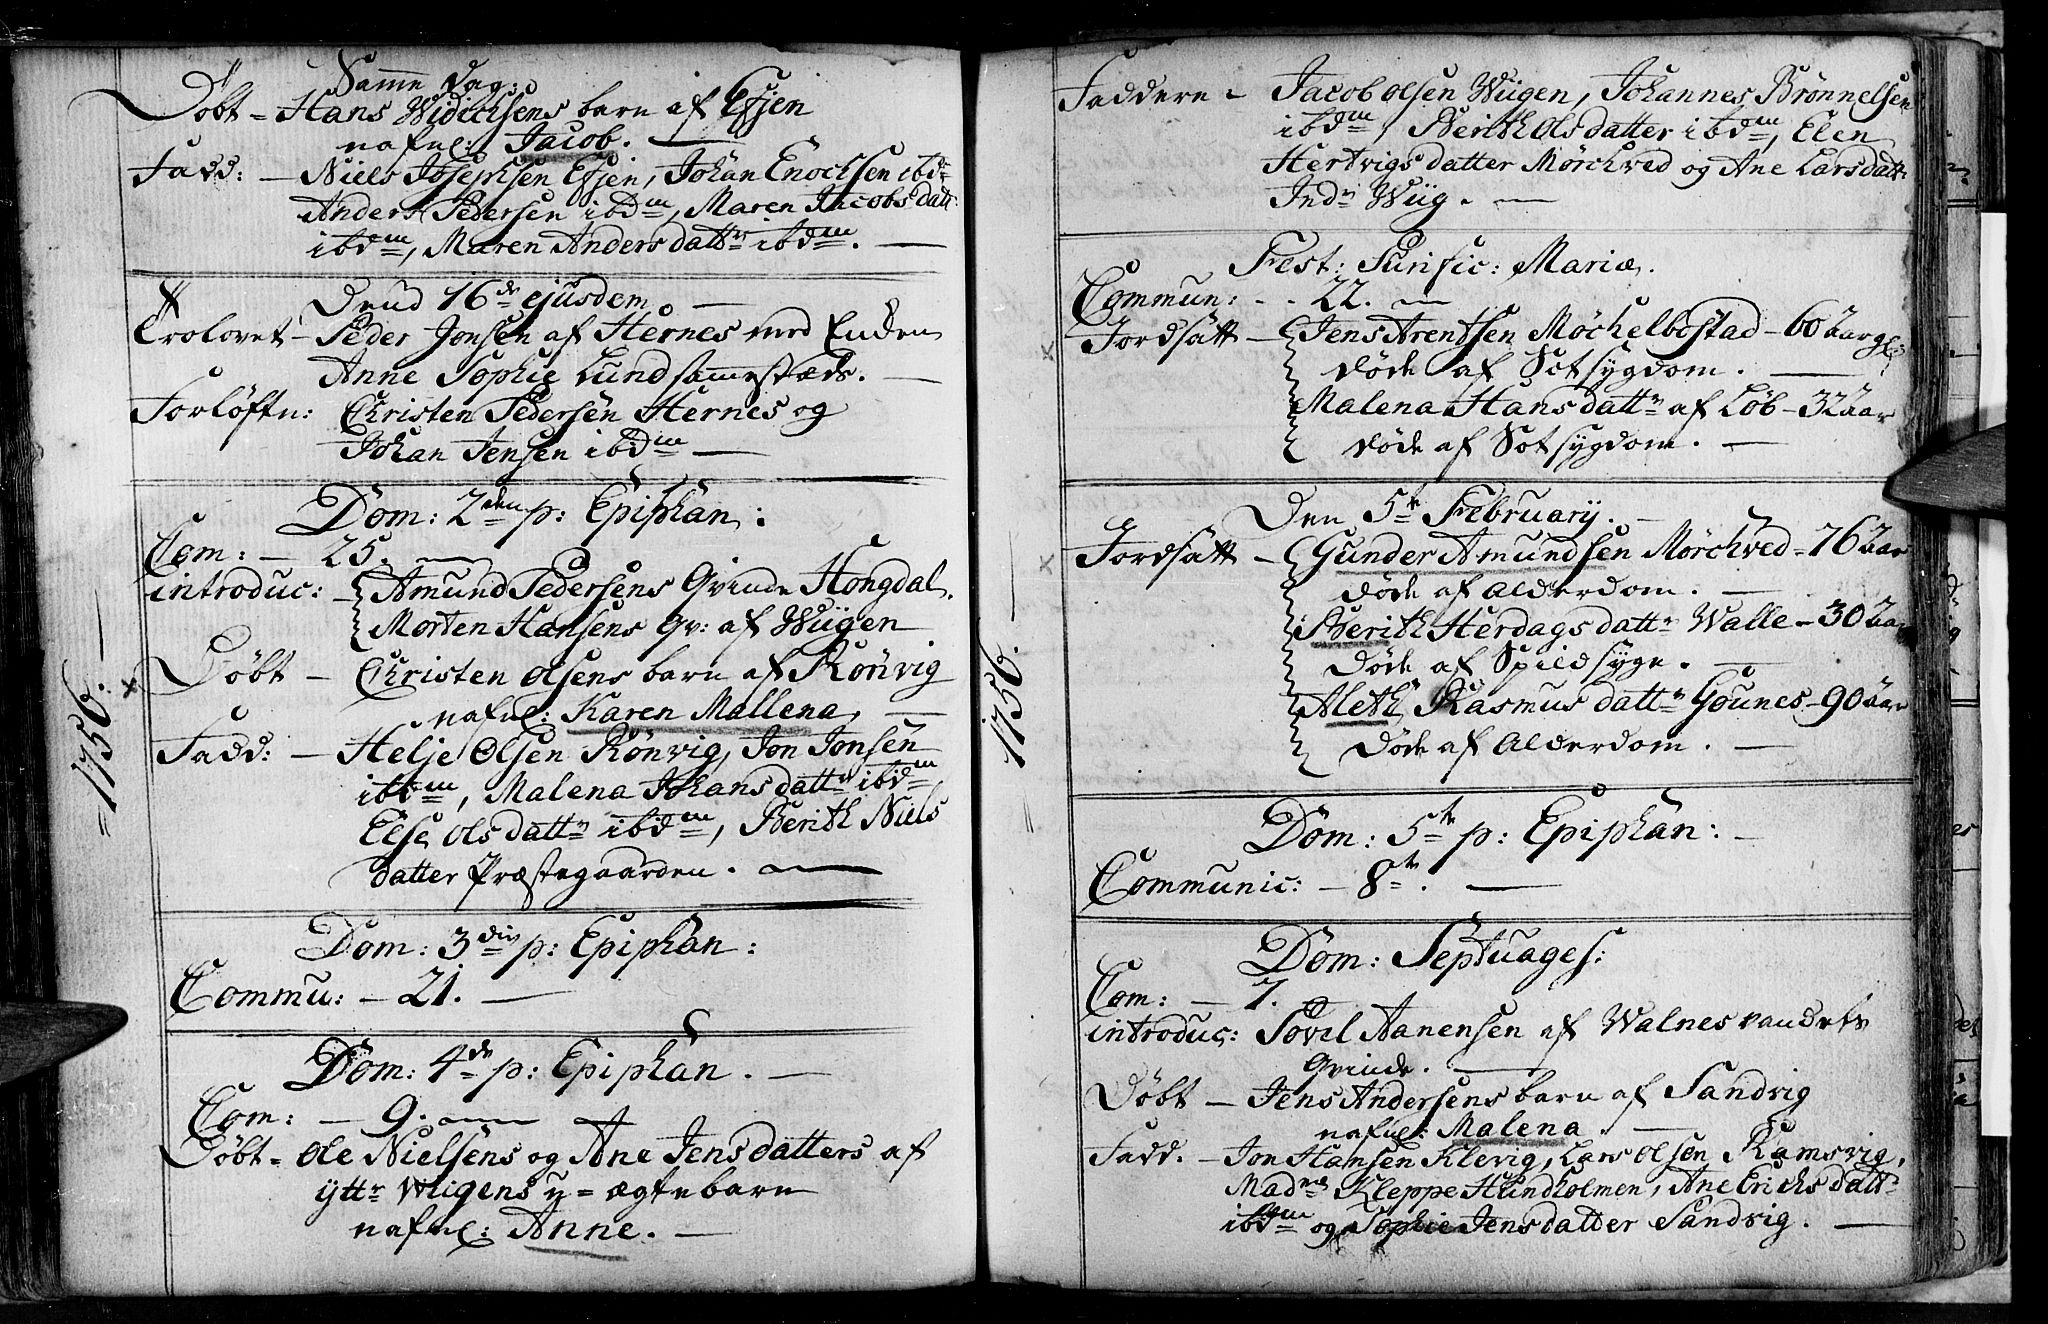 Samme Dag:
Døbt = Hans Widichsens barn af Efjen
nafnl: Jacob.
Fadd: – Niels Josephsen Efjen, Johan Enochsen ibd
Anders Pedersen ibdm, Maren Jacobs datt:
ibdm, Maren Anders dattr ibdm.
Dend 16de ejusdem.
Trolovet – Peder Jonsen af Hernes med Enden
Anne Sophie Lund sammestæds.
Forløftn: Christen Pedersen Hernes og
Johan Jensen ibdm
Dom: 2den p: Epiphan:
Com: – 25.
introduc: – Amund Pedersens Qvinde Hongdal.
Morten Hansens Qv: af Wiigen
Døbt – Christen Olsens barn af Rönvig
nafnl: Karen Mallena,
Fadd: – Helje Olsen Rönvig, Jon Jonsen
ibdm, Malena Johans dattr ibdm
Else Ols dattr ibdm, Berith Niels
datter Præstegaarden.
Dom: 3die p: Epiphan:
Commu: – 21.
Dom: 4de p: Epiphan.
Com: – 9.
Døbt = Ole Nielsens og Ane Jens datters af
yttr Wiigens u = ægte barn
nafnl: Anne.
= 1756.
Faddere – Jacob Olsen Wiigen, Johannes Brønnelsen
ibdm, Berith Ols datter ibdm, Elen
Hertvigs datter Mörchved og Ane Lars datt:
Indr Wiig.
Fest: Purific: Mariæ.
Commun: – 22.
Jordsatt – Jens Arentsen Möchelbostad – 60 Aar gl:
døde af Sotsygdom.
Malena Hans dattr af Löb – 32 Aar
døde af Sotsygdom.
Den 5te February.
Jordsatt – Gunder Amundsen Mörchved = 76 Aar
døde af Alderdom.
Berith Herdags dattr Walle – 30 Aar
Døde af Spildsyge.
Aleth Rasmus dattr Gounes – 90 Aar
Døde af Alderdom.
Dom: 5te p: Epiphan:
Communic: – 8te.
Dom: Septuages:
Com: – 7.
introduc: Sövel Aanensen af Walnesvandets
Qvinde.
Døbt – Jens Andersens barn af Sandvig
nafnl: Malena.
Fadd. – Jon Hansen Klevig, Lars Olsen Ramsvig,
Madme Kleppe Hundholmen, Ane Erichs datt
ibdm og Sophie Jens datter Sandvig.
1756. =